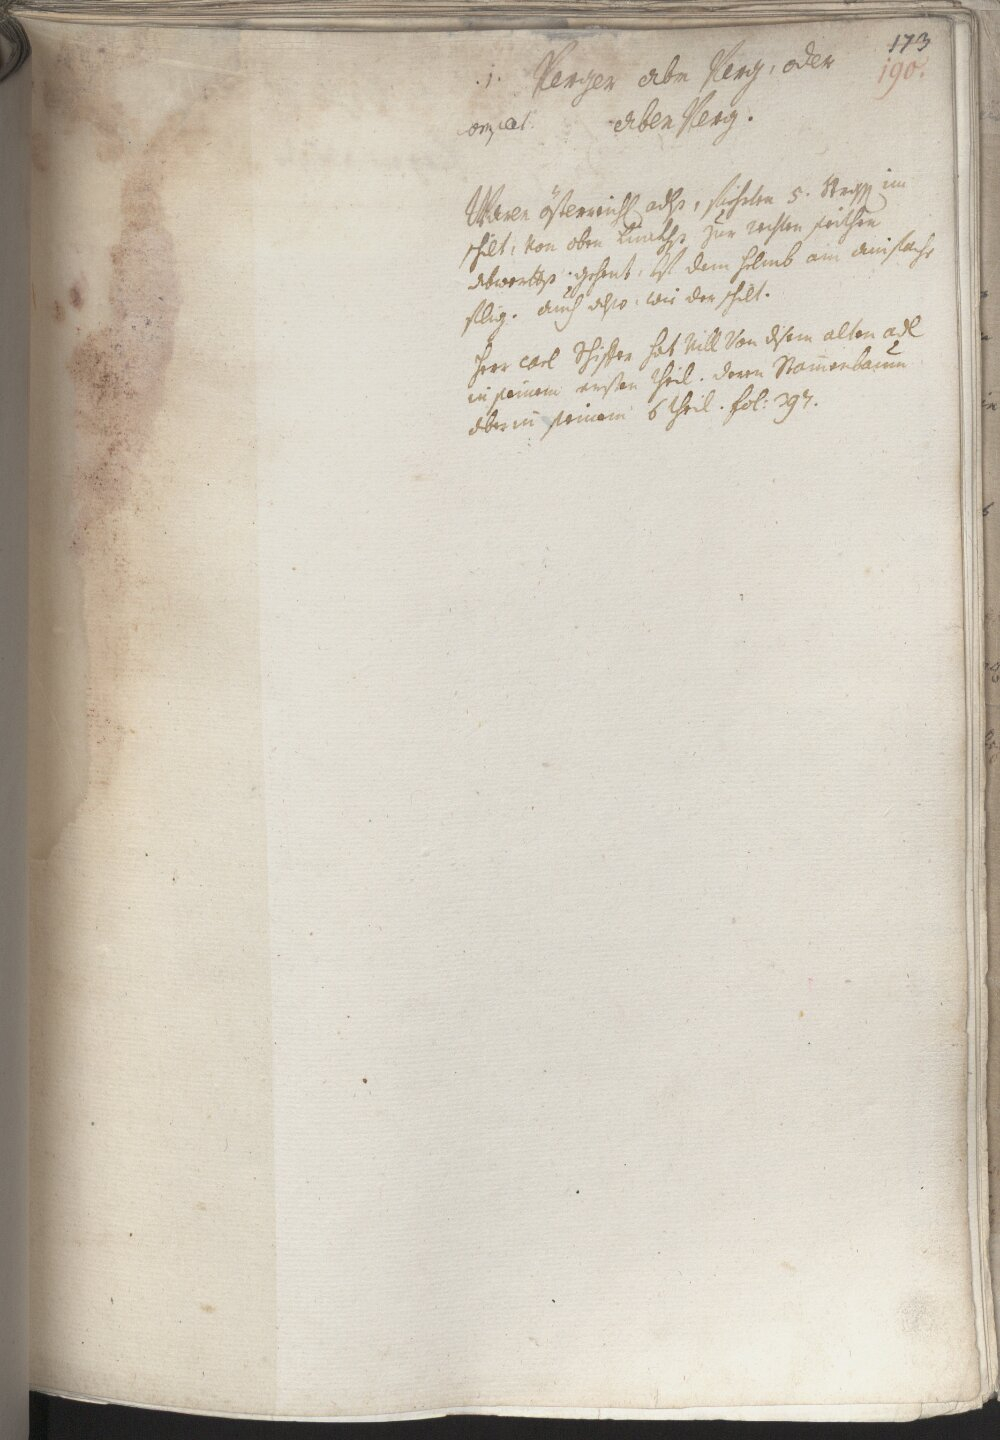 173
190.
.j. Perger abm Perg, oder
aben Perg.
Waren Österreich adl, füehrten 5. im
schilt, von oben zur rechten seithen
abwerths gehent, auf dem helmb ein einfache
flüg. auch also: wie der schilt.
Herr Carl Schiffer hat vill von disem alten adl
in seinem ersten theil. deren Stammenbaum
aber in seinem 6 theil. fol: 397.